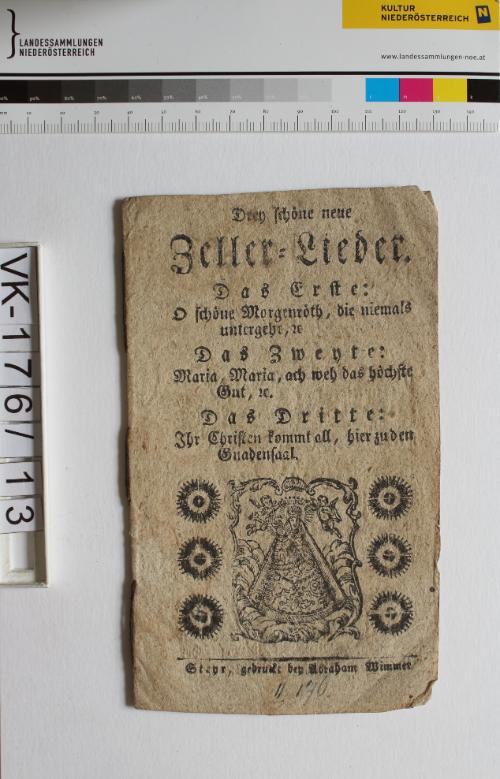 LANDESSAMMLUNGEN
NIEDERÖSTERREICH
KULTUR
NIEDERÖSTERREICH
www.landessammlungen-noe.at
VK-176/13
Drey schöne neue
Zeller-Lieder.
Das Erste:
O schöne Morgenröth, die niemals
untergeht, ꝛc
Das Zweyte:
Maria, Maria, ach weh das höchste
Gut, ꝛc.
Das Dritte:
Ihr Christen kommt all, hier zu den
Gnadensaal.
Steyr, gedruckt bey Abraham Wimmer